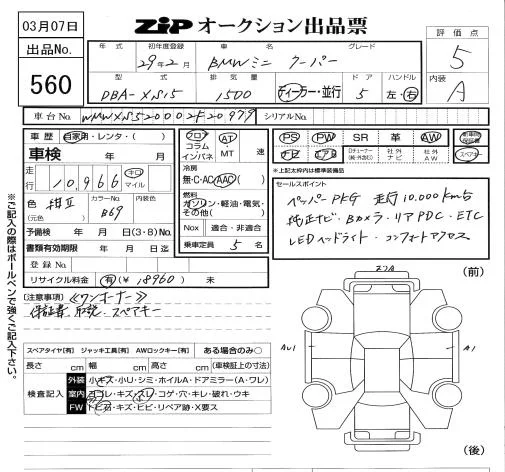 03月07日
ZIPオークション出品票
評価点
5
内装
A
出品No.
560
年式 初年度登録 車名 グレード
29年2月 BMWミニ クーパー
型式 排気量 ドア ハンドル
DBA-XS15 1500 ディーラー・並行 5 左・右
車台No. WMWXS520002F20979 シリアルNo.
車歴 自家用・レンタ・( )
車検 年 月
走行 10,966 キロ マイル
色 橙II カラーNo. B69 内装色
(元色)
予備検 年 月 日(3・8)No.
書類有効期限 年 月 日迄
登録No.
リサイクル料金 有(¥18960) 未
フロア コラム インパネ AT・MT 速
冷房
無・C・AC・AAC
燃料
ガソリン・軽油・電気・その他( )
Nox 適合・非適合
乗車定員 5 名
PS PW SR 革 AW
ナビ エアB 社外ナビ 社外AW スペアキー
*上記太枠内は標準装備品
セールスポイント
ペッパーPKG 走行10,000km台
純正ナビ・Bカメラ・リアPDC・ETC
LEDヘッドライト・コンフォートアクセス
【注意事項】 《ワンオーナー》
保証書、取説、スペアキー
スペアタイヤ[有] ジャッキ工具[有] AWロックキー[有] ある場合のみ○
長さ cm 幅 cm 高さ cm (車検証上の寸法)
検査記入
外装 小キズ・小U・シミ・ホイルA・ドアミラー(A・ワレ)
室内 ヨゴレ・キズ・スレ・コゲ・穴・キレ・破れ・ウキ
FW トビ石・キズ・ヒビ・リペア跡・X要ス
(前)
AU1
A1
(後)
※ご記入の際はボールペンで強くご記入下さい。